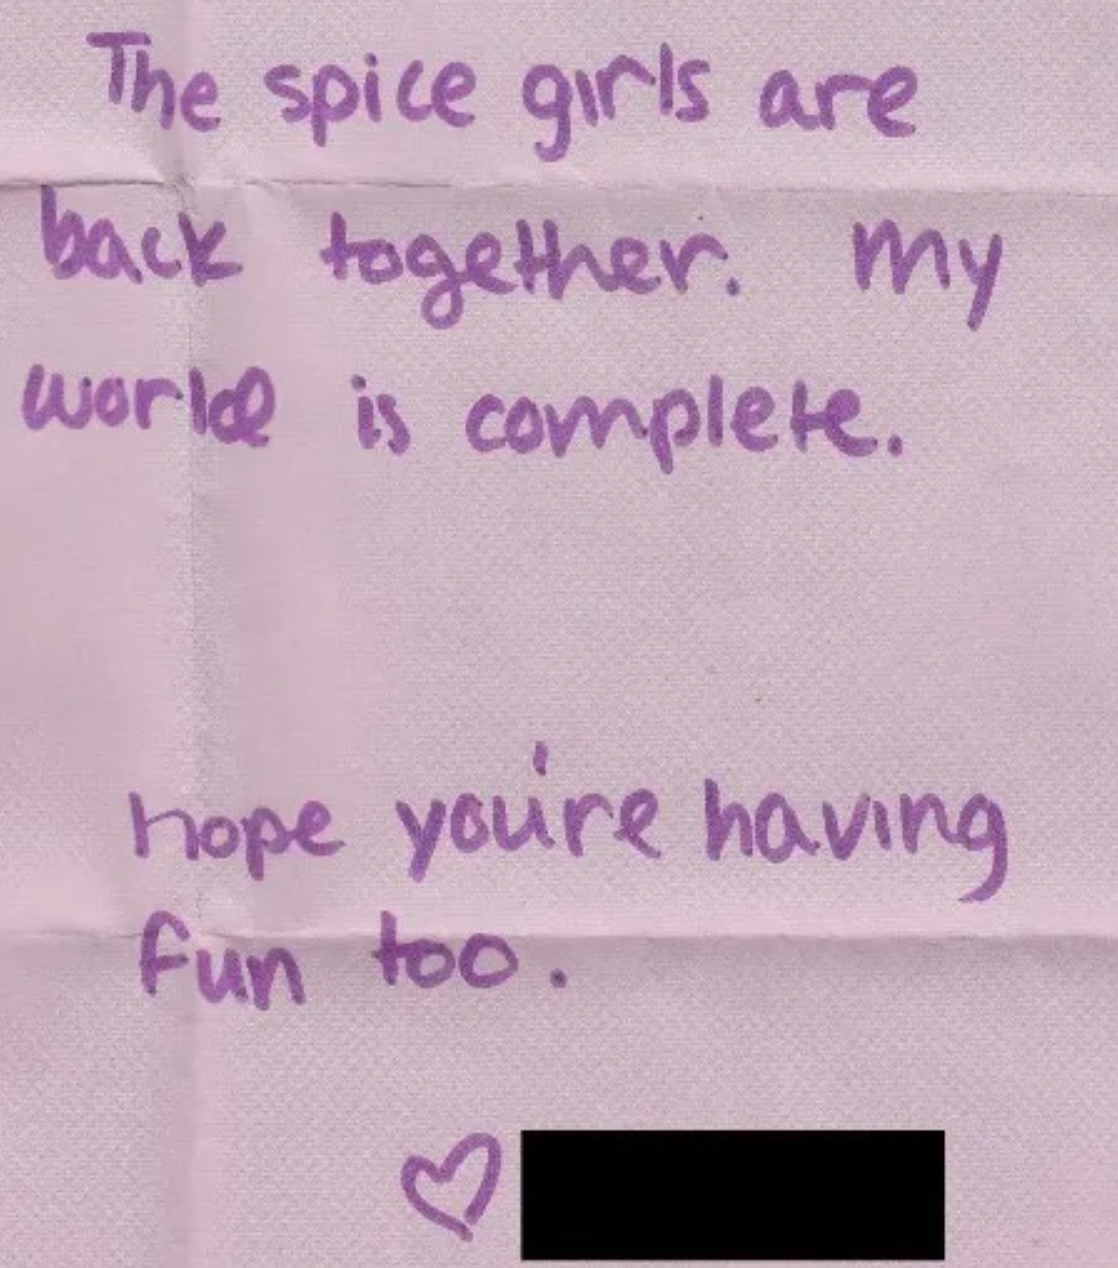 The spice girls are
back together. My
world is complete.
hope you're having
fun too.
♡